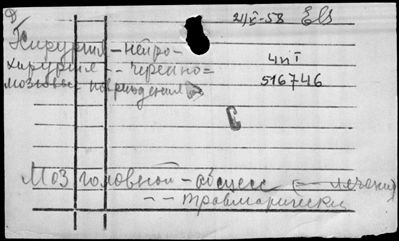 21/X-58 Els
Хирургия - нейро-
хирургия - - черепно=
мозговые повреждения
4п I
516746
C
Мозг головной - абсцесс (- лечение)
- - травматически